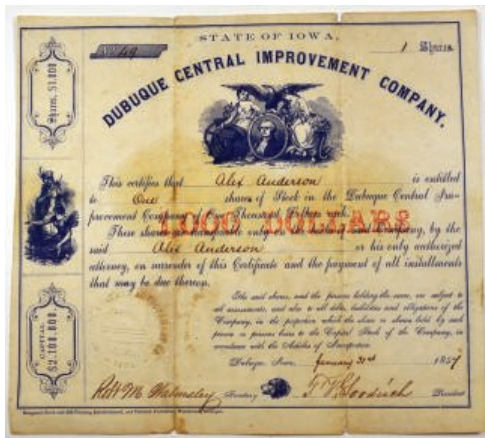 STATE OF IOWA,
No. 49
1 Shares.
DUBUQUE CENTRAL IMPROVEMENT COMPANY.
Shares, $1,000
This certifies that Alex Anderson is entitled
to One shares of Stock in the Dubuque Central Im-
provement Company of One Thousand Dollars each.
1,000 DOLLARS
These shares are transferable only on the books of the Company, by the
said Alex Anderson or his only authorized
attorney, on surrender of this Certificate and the payment of all installments
that may be due thereon.
The said shares, and the persons holding the same, are subject to
all assessments, and also to all debts, liabilities and obligations of the
Company, in the proportion which the share or shares held by such
person or persons bears to the Capital Stock of the Company, in
accordance with the Articles of Incorporation.
CAPITAL
$2,100,000.
Dubuque, Iowa, January 31st 1857
Secretary
F. V. Goodrich President